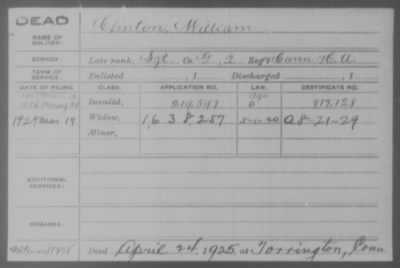 DEAD
NAME OF SOLDIER:
Clinton, William
SERVICE:
Late rank, Sgt Co. G, 2 Reg't Conn H.A.
TERM OF SERVICE:
Enlisted , 1 Discharged , 1
DATE OF FILING. CLASS. APPLICATION NO. LAW. CERTIFICATE NO.
Invalid, 817,128
1929 Mar 19 Widow, 1,638,257 A8-21-29
Minor,
ADDITIONAL SERVICES:
REMARKS:
Died April 2d, 1925, at Torrington, Conn.